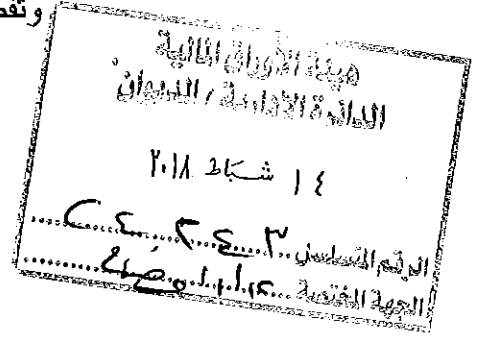 هيئة الأوراق المالية
الدائرة الادارية / الديوان
١٤ شباط ٢٠١٨
الرقم المتسلسل
الجهة المختصة